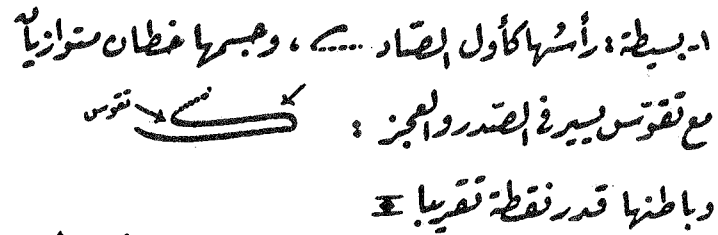 ١- بسيطة : رأسُها كأول الصّاد .....، وجسمها خطان متوازيان
مع تقوّس يسير في الصّدر والعجز : تقوس
وباطنها قدر نقطة تقريبا